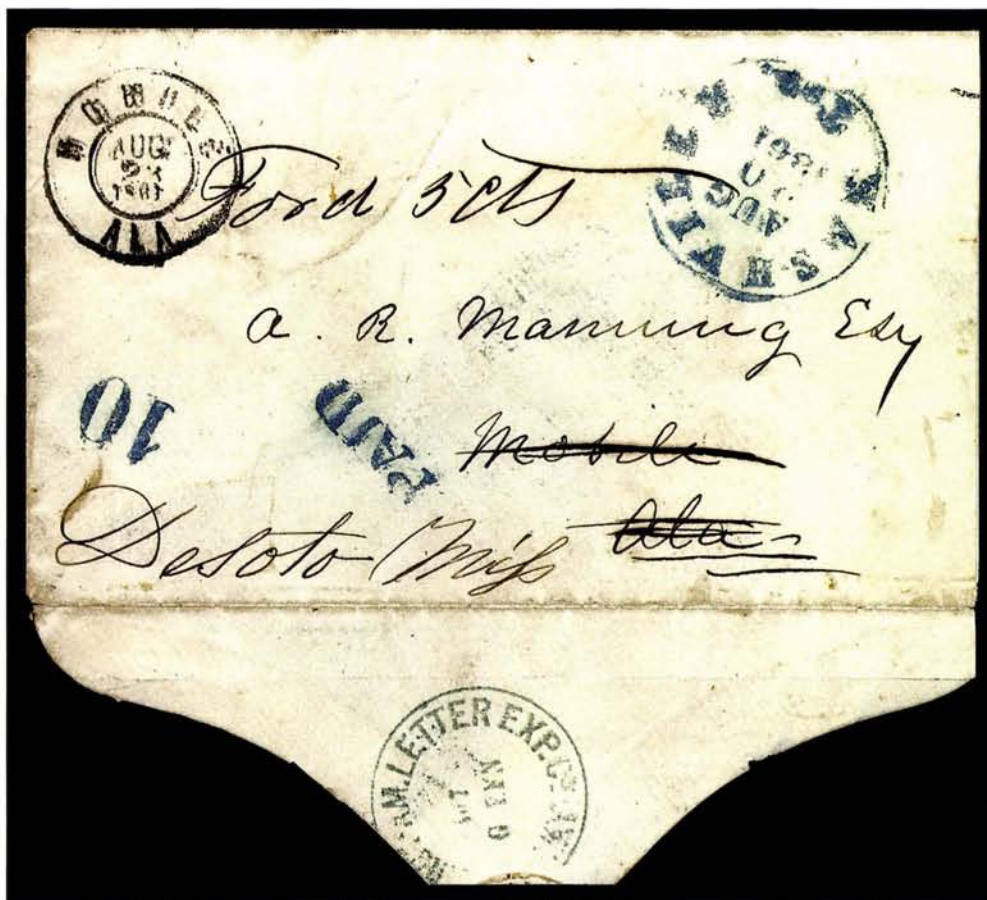 MOBILE
AUG
23
1861
ALA
NASHVILLE
AUG
1861
Ford 5 cts
A. R. Manning Esq
Mobile
Ala
10
PAID
DeSoto Miss
AM. LETTER EXP. Co.